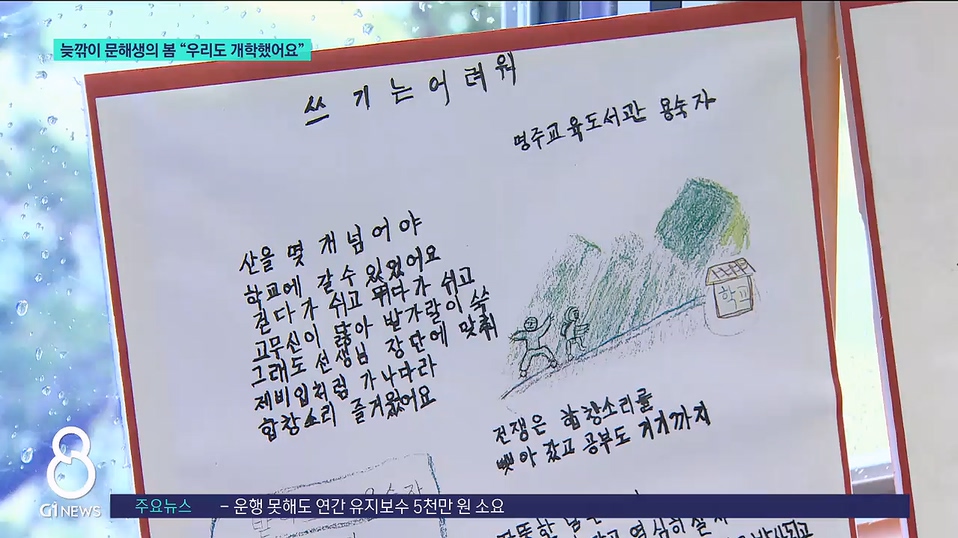 늦깎이 문해생의 봄 “우리도 개학했어요”
쓰기는 어려워
명주교육도서관 용숙자
산을 몇 개 넘어야
학교에 갈 수 있었어요
걷다가 쉬고 뛰다가 쉬고
고무신이 닳아 발가락이 쑥
그래도 선생님 장단에 맞춰
제비입처럼 가나다라
합창소리 즐거웠어요
학교
전쟁은 합창소리를
뺏아 갔고 공부도 거기까지
8
G1 NEWS
주요뉴스 - 운행 못해도 연간 유지보수 5천만 원 소요
열심히